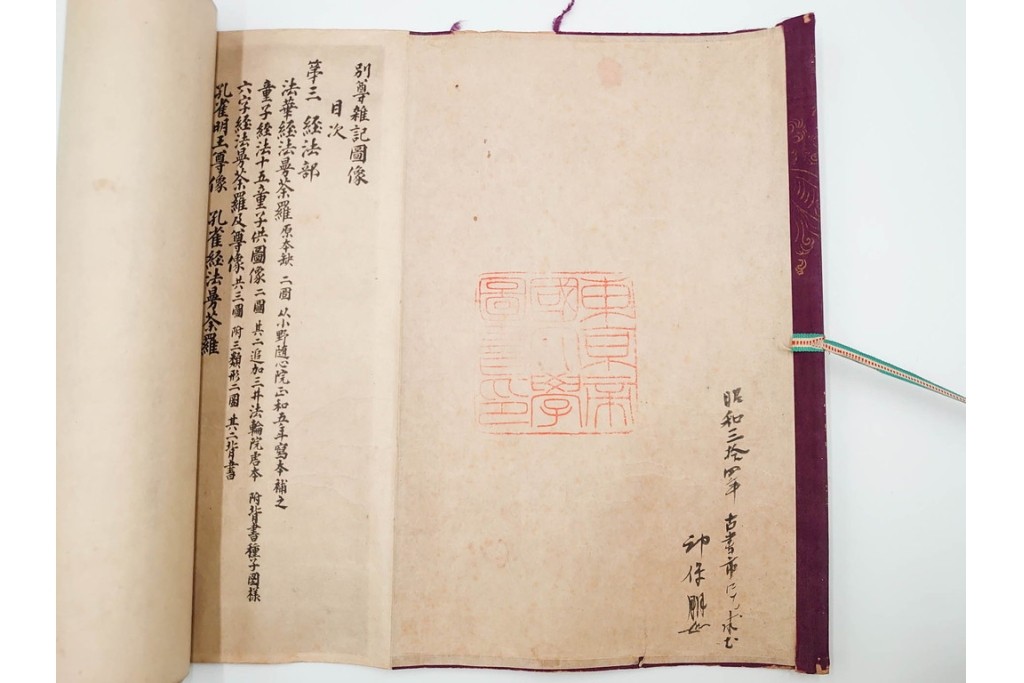 昭和三拾四年 古書市にて求む
神保朋世
東京帝
國大學
圖書印
別尊雜記圖像
目次
第三 經法部
法華經法曼荼羅 原本缺 二圖 从小野随心院正和五年寫本補之
童子經法十五童子供圖像 二圖 其二追加三井法輪院唐本 附背書種子圖様
六字經法曼荼羅及尊像 共三圖 附三類形二圖 其二背書
孔雀明王尊像 孔雀經法曼荼羅